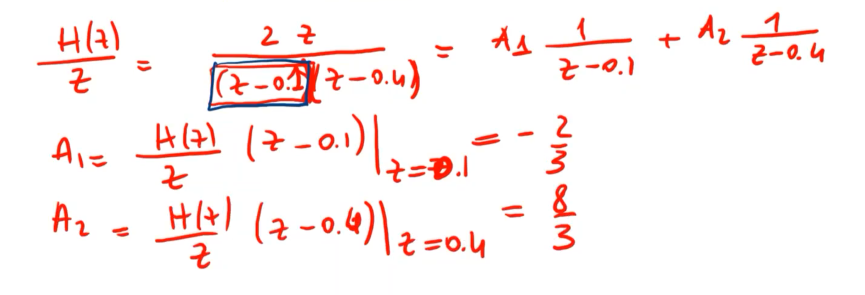 H(z)/z = 2 z / (z-0.1)(z-0.4) = A1 1/(z-0.1) + A2 1/(z-0.4)
A1 = H(z)/z (z-0.1)|z=0.1 = - 2/3
A2 = H(z)/z (z-0.4)|z=0.4 = 8/3